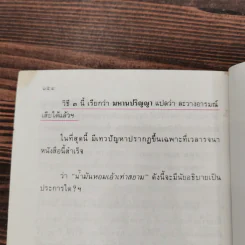 วิธี ๓ นี้ เรียกว่า มหานปริญญา แปลว่า ละวางอารมณ์
เสียได้แล้วฯ
ในที่สุดนี้ มีเทวปัญหาปรากฏขึ้นเฉพาะที่เวลารจนา
หนังสือนี้สำเร็จ
ว่า "น้ำมันหอมเอ้าเท่าสยาม" ดังนี้จะมีนัยอธิบายเป็น
ประการใด ? ฯ